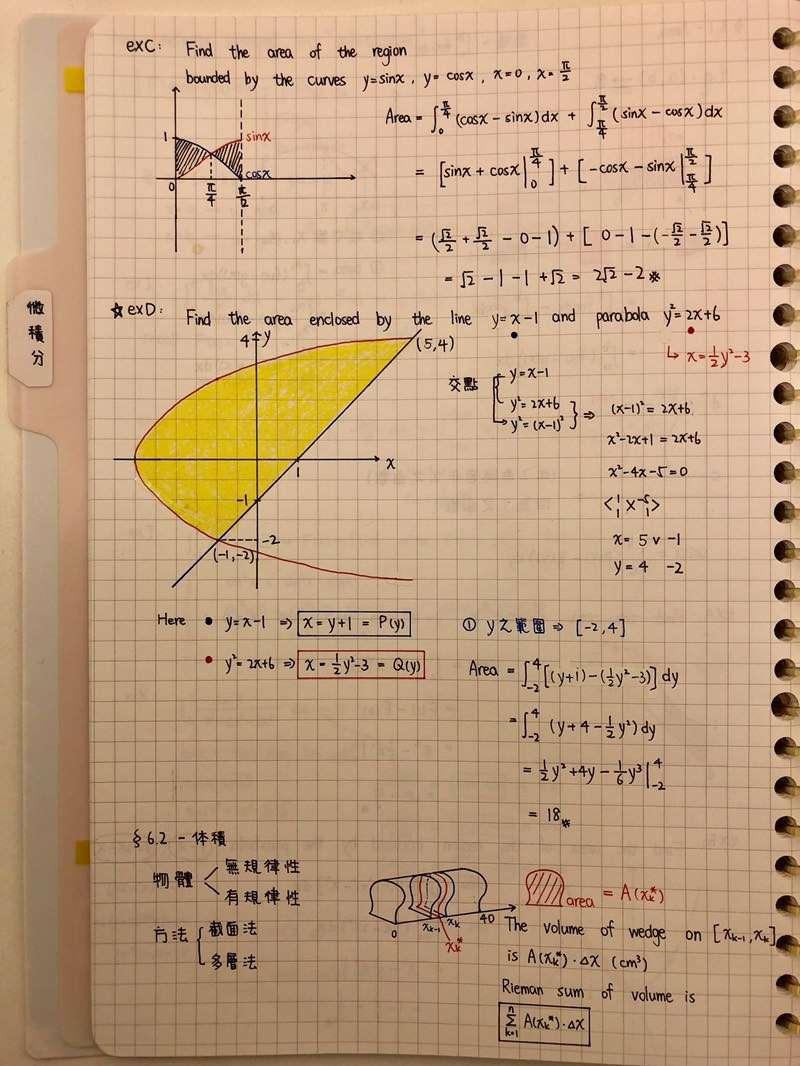 微積分
exC: Find the area of the region
bounded by the curves y=sinx, y=cosx, x=0, x=π/2
1
sinx
cosx
0 π/4 π/2
Area = ∫_0^{π/4} (cosx - sinx)dx + ∫_{π/4}^{π/2} (sinx - cosx)dx
= [sinx + cosx |_0^{π/4}] + [-cosx - sinx |_{π/4}^{π/2}]
= (√2/2 + √2/2 - 0 - 1) + [0 - 1 - (-√2/2 - √2/2)]
= √2 - 1 - 1 + √2 = 2√2 - 2 ※
☆ exD: Find the area enclosed by the line y=x-1 and parabola y²=2x+6
↳ x=½y²-3
4 y
(5,4)
x
1
-1
-2
(-1,-2)
交點 { y=x-1
y²=2x+6
y²=(x-1)² } ⇒ (x-1)²=2x+6
x²-2x+1=2x+6
x²-4x-5=0
<1 1 × -5 1>
x= 5 ∨ -1
y= 4 -2
Here • y=x-1 ⇒ x=y+1 = P(y)
• y²=2x+6 ⇒ x=½y²-3 = Q(y)
① y之範圍 ⇒ [-2,4]
Area = ∫_{-2}^{4} [(y+1)-(½y²-3)] dy
= ∫_{-2}^{4} (y+4-½y²) dy
= ½y²+4y-⅙y³ |_{-2}^{4}
= 18 ※
§ 6.2 - 体積
物體 < 無規律性
有規律性
方法 { 截面法
多層法
0 x_{k-1} x_k 40
x_k*
area = A(x_k*)
The volume of wedge on [x_{k-1}, x_k]
is A(x_k*)·Δx (cm³)
Rieman sum of volume is
∑_{k=1}^{n} A(x_k*)·Δx